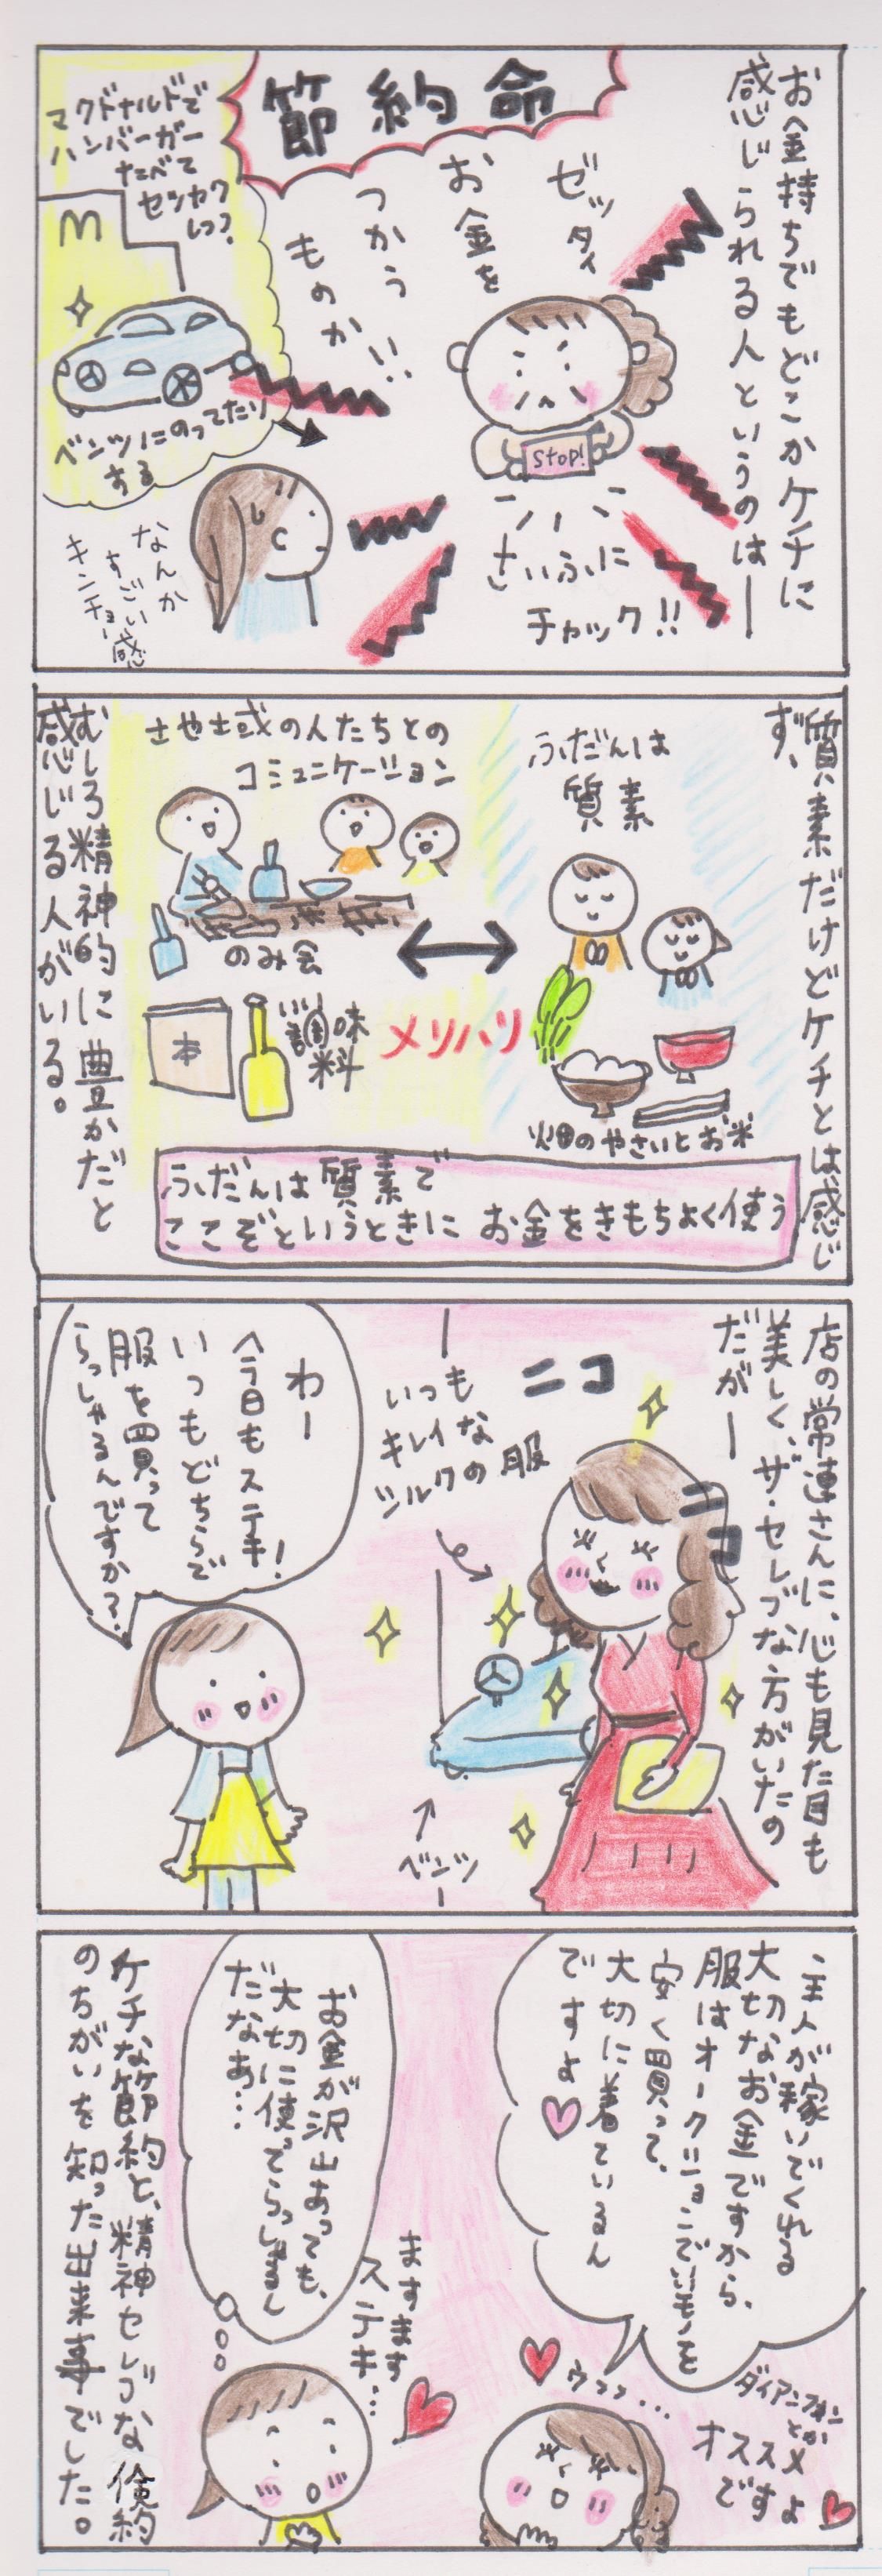 お金持ちでもどこかケチに
感じられる人というのは―
節約命
ゼッタイ
お金を
つかう
ものか
!!
stop!
さいふに
チャック!!
マクドナルドで
ハンバーガー
たべて
セツヤク
しつつ?
M
ベンツにのってたり
する
なんか
すごい
キンチョー感
質素だけどケチとは感じ
ず、
ふだんは
質素
畑のやさいとお米
メリハリ
さや士或の人たちとの
コミュニケーション
のみ会
本
調味
料
ふだんは質素で
ここぞというときに お金をきもちよく使う
むしろ精神的に豊かだと
感じる人がいる。
店の常連さんに、心も見た目も
美しく、ザ・セレブな方がいたの
だがー
ニコ
ニコ
いつも
キレイな
シルクの服
ベンツ
わー
今日もステキ!
いつもどちらで
服を買って
らっしゃるんですか?
主人が稼いでくれる
大切なお金ですから、
服はオークションで
安く買って、
大切に着ているん
ですよ
ウフフ...
オススメ
ですよ
お金が沢山あっても、
大切に使ってらっしゃるん
だなあ…
ますます
ステキ…
ケチな節約と、精神セレブな倹約
のちがいを知った出来事でした。